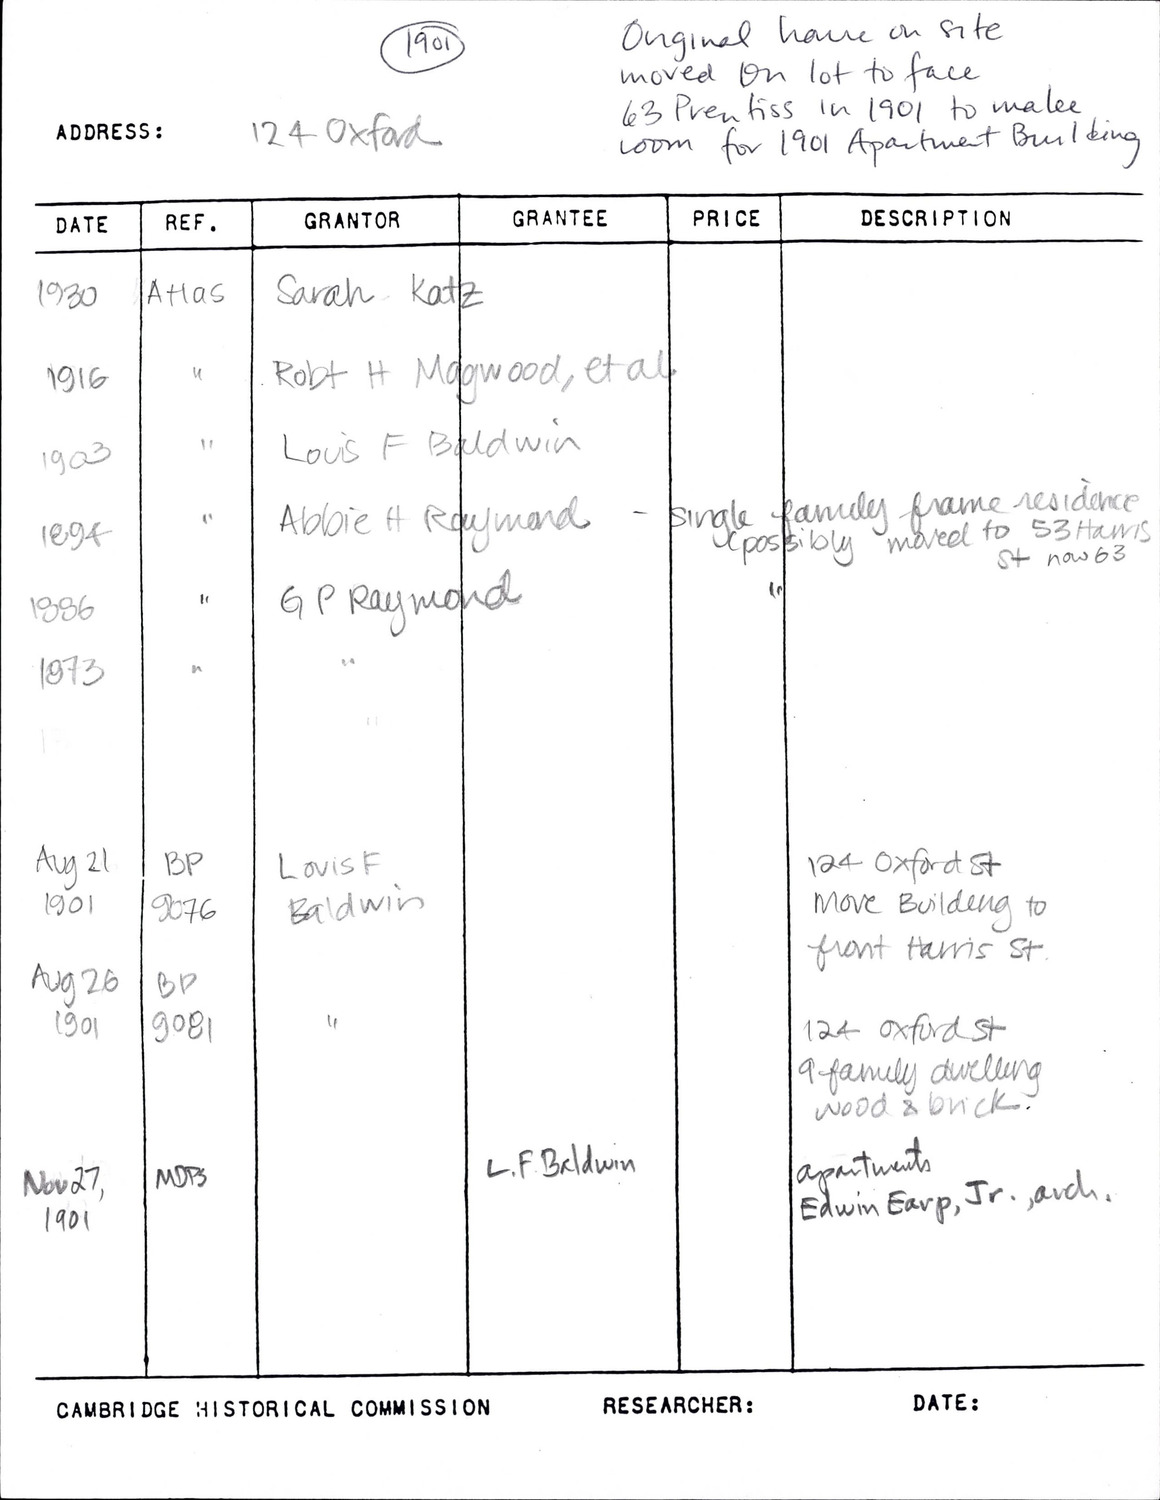 1901
Original house on site
moved on lot to face
63 Prentiss in 1901 to make
room for 1901 Apartment Building
ADDRESS: 124 Oxford
DATE REF. GRANTOR GRANTEE PRICE DESCRIPTION
1930 Atlas Sarah Katz
1916 " Robt H Magwood, et al
1903 " Louis F Baldwin
1894 " Abbie H Raymond - single family frame residence
(possibly moved to 53 Harris
St now 63
1886 " G P Raymond "
1873 " "
"
Aug 21 BP Louis F 124 Oxford St
1901 9076 Baldwin Move Building to
front Harris St.
Aug 26 BP
1901 9081 " 124 Oxford St
9-family dwelling
wood & brick.
Nov 27, MDPS L.F. Baldwin apartments
1901 Edwin Earp, Jr., arch.
CAMBRIDGE HISTORICAL COMMISSION RESEARCHER: DATE: